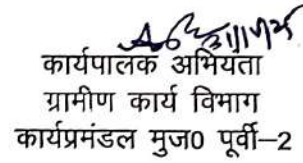 कार्यपालक अभियता
ग्रामीण कार्य विभाग
कार्यप्रमंडल मुज0 पूर्वी–2